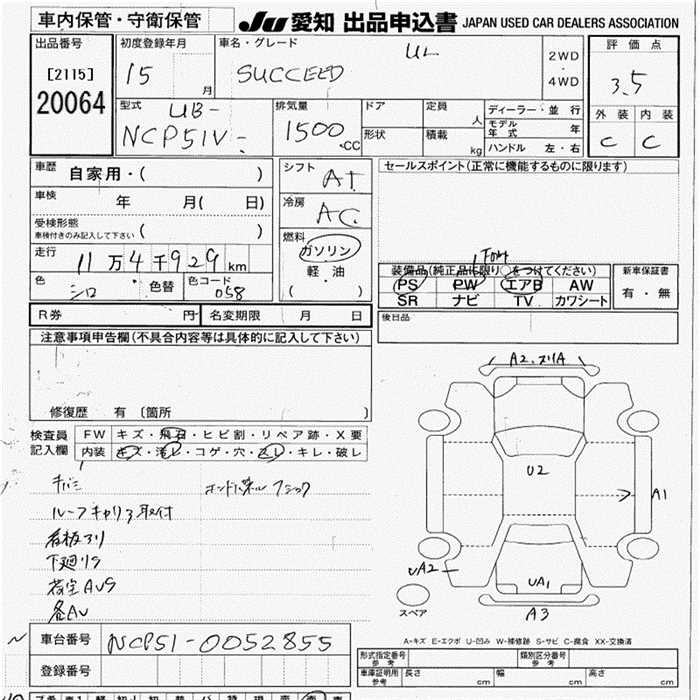 車内保管・守衛保管
JU 愛知 出品申込書 JAPAN USED CAR DEALERS ASSOCIATION
出品番号
[2115]
20064
初度登録年月
15 月
車名・グレード
UL
SUCCEED
2WD
・
4WD
評価点
3.5
外装 内装
C C
型式
UB-
NCP51V-
排気量
1500.CC
ドア
形状
定員
人
積載
kg
ディーラー・並行
モデル年式 年
ハンドル 左・右
車歴 自家用・( )
車検 年 月( 日)
受検形態
車検付きのみ記入して下さい ( )
走行 11万4千929km
色 シロ 色替 色コード 058
シフト AT
冷房 AC
燃料
ガソリン
軽・油
( )
セールスポイント(正常に機能するものに限ります)
装備品(純正品に限り○をつけてください)
PS PW エアB AW
SR ナビ TV カワシート
新車保証書
有・無
R券 円 名変期限 月 日
後日品
注意事項申告欄(不具合内容等は具体的に記入して下さい)
修復歴 有 〔箇所 〕
検査員
記入欄
FW キズ・飛石・ヒビ割・リペア跡・X要
内装 キズ・汚レ・コゲ・穴・スレ・キレ・破レ
ルーフキャリア取付
看板アリ
下廻りS
荷室AUS
各AU
A2.スリA
U2
A1
UA2
UA1
A3
スペア
A-キズ E-エクボ U-凹み W-補修跡 S-サビ C-腐食 XX-交換済
車台番号 NCP51-0052855
登録番号
形式指定番号
参考
類別区分番号
参考
車庫証明用
参考
長さ cm 幅 cm 高さ cm